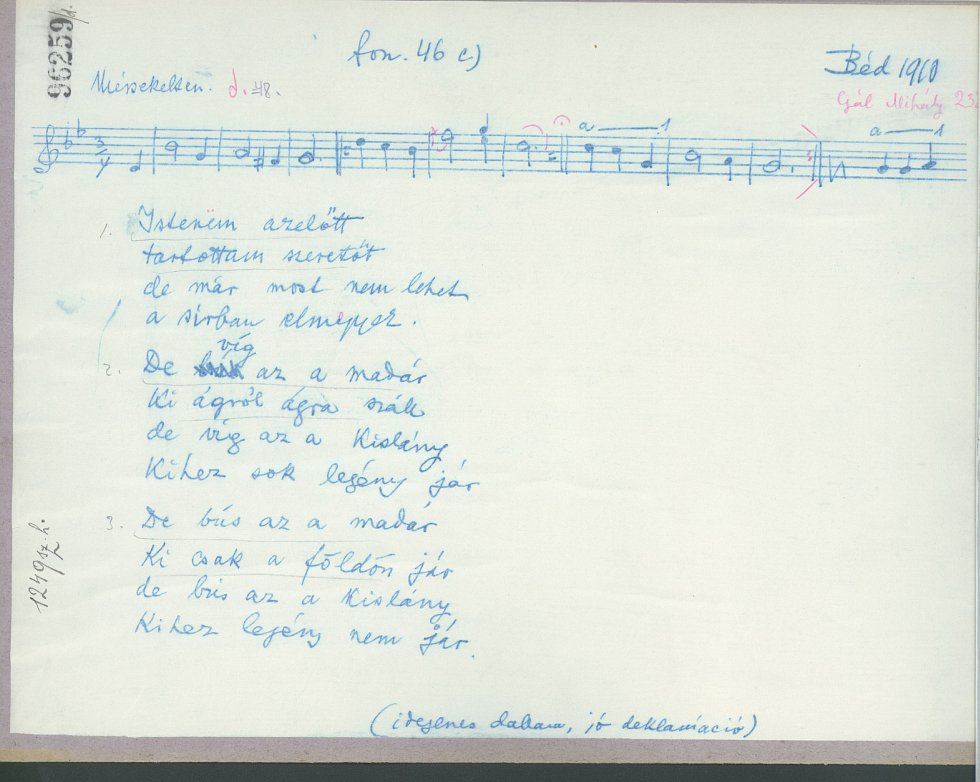 96259/1.
fon. 46 c)
Béd 1910
Mérsékelten. ♩. 48.
Gál Mihály 23
3/4
a 1
a 1
1. Istenëm azelőtt
tartottam szeretőt
de már most nem lehet
a sírban elmegyek.
víg
2. De az a madár
Ki ágról ágra száll
de víg az a Kislány
Kihez sok legény jár
3. De bús az a madár
Ki csak a földön jár
de bús az a Kislány
Kihez legény nem jár.
1249 sz. h.
(idegenes dallam, jó deklamáció)